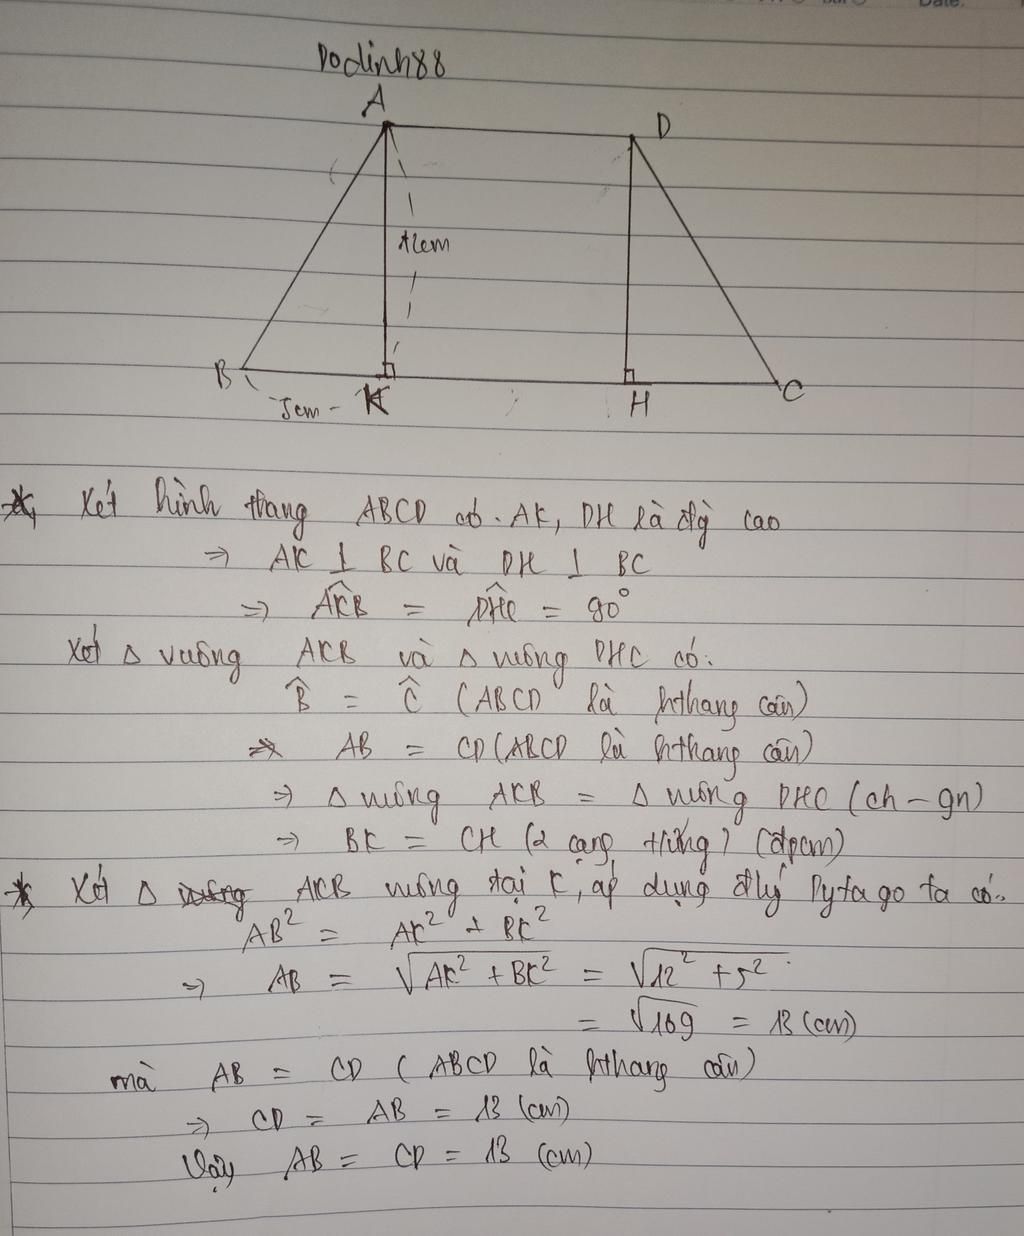 Dodinh88
A
D
12cm
B
5cm
K
H
C
* Xét hình thang ABCD có. AK, DH là đg cao
=> AK ⊥ BC và DH ⊥ BC
=> \widehat{AKB} = \widehat{DHC} = 90°
Xét Δ vuông AKB và Δ vuông DHC có:
\widehat{B} = \widehat{C} (ABCD là hthang cân)
AB = CD (ABCD là hthang cân)
=> Δ vuông AKB = Δ vuông DHC (ch - gn)
=> BK = CH (2 cạnh t/ứng) (đpcm)
* Xét Δ AKB vuông tại K, áp dụng đlý Pytago ta có:
AB² = AK² + BK²
=> AB = √(AK² + BK²) = √(12² + 5²)
= √169 = 13 (cm)
mà AB = CD (ABCD là hthang cân)
=> CD = AB = 13 (cm)
Vậy AB = CD = 13 (cm)